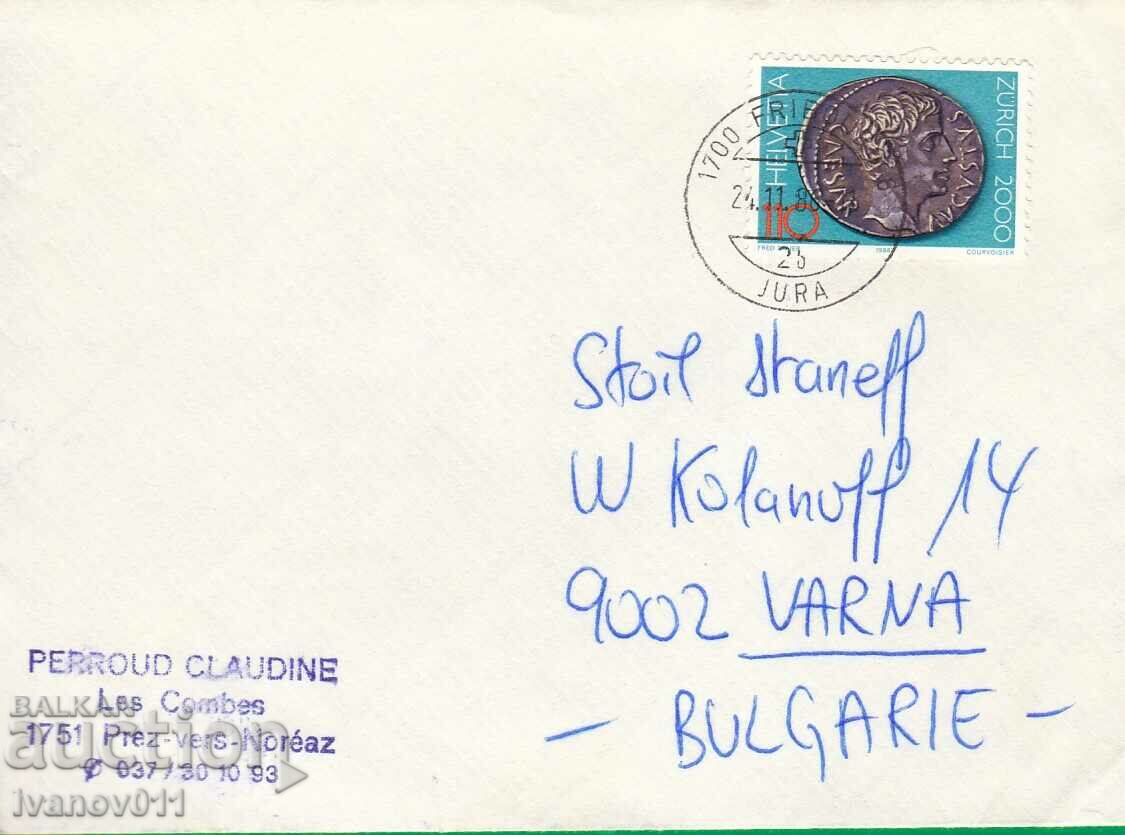 HELVETIA
ZÜRICH 2000
CAESAR
AVGVSTVS
110
1988
COURVOISIER
1700
24.11.8
JURA
Stoil Staneff
W Kolanoff 14
9002 VARNA
- BULGARIE -
PERROUD CLAUDINE
Les Combes
1751 Prez-vers-Noréaz
037 / 30 10 93
BALKAN
auction
ivanov011